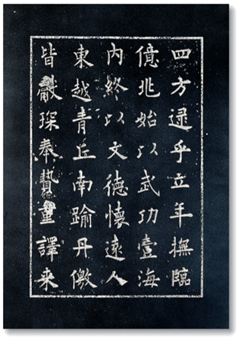 四方逮乎立年撫臨
億兆始以武功壹海
內終以文德懷遠人
東越青丘南踰丹儌
皆獻琛奉贄重譯来